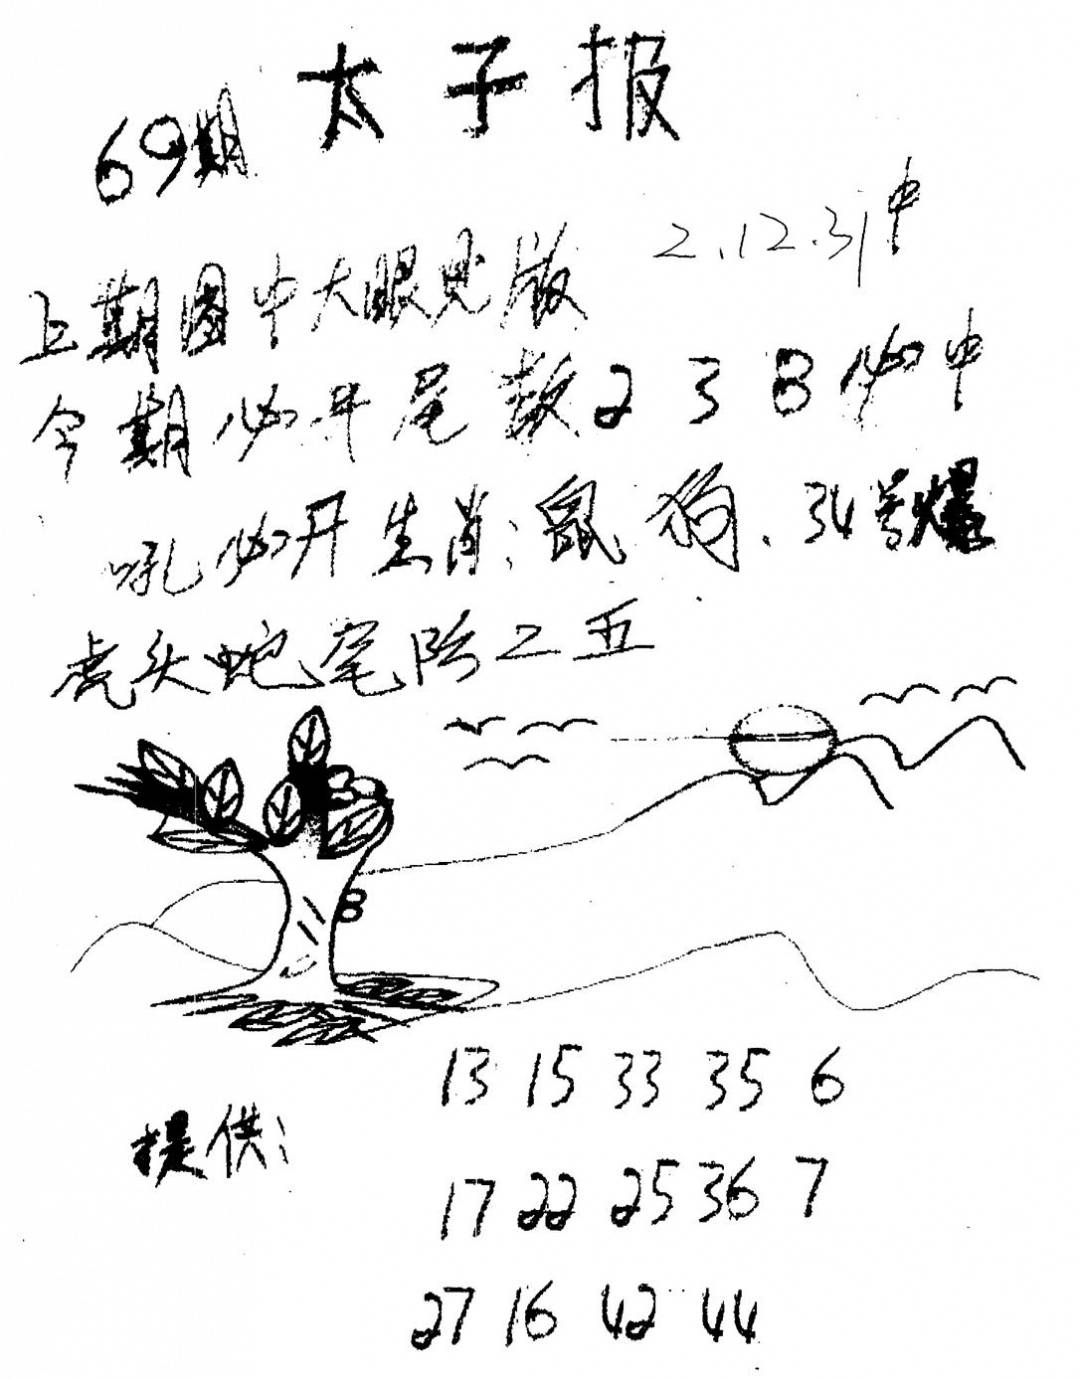 太子报
69期
2.12.31中
上期图中大眼见版
今期必开尾数238必中
吼必开生肖:鼠狗.34号爆
虎头蛇尾防二五
提供:
13 15 33 35 6
17 22 25 36 7
27 16 42 44